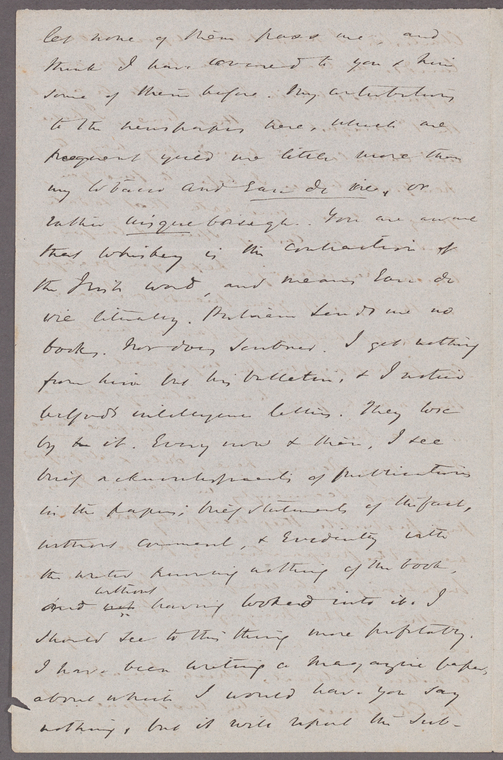 let none of them pass me, and
think I have covered to you & him
some of them before. My contributions
to the newspapers here, which are
frequent yield me little more than
my tobacco and Eau de vie, or
rather usquebaugh. You are aware
that whiskey is the contraction of
the Irish word, and means Eau de
vie literally. Putnam sends me no
books. Nor does Scribner. I get nothing
from him but his bulletin, & I notice
intelligence letters. They lose
by it. Every now & then, I see
brief acknowledgments of publications
in the papers; brief statements of the fact,
without comment, & Evidently with
the writer knowing nothing of the book,
and without having looked into it. I
should see to this thing more profitably.
I have been writing a magazine paper,
about which I would have you say
nothing, but it will upset the sub-